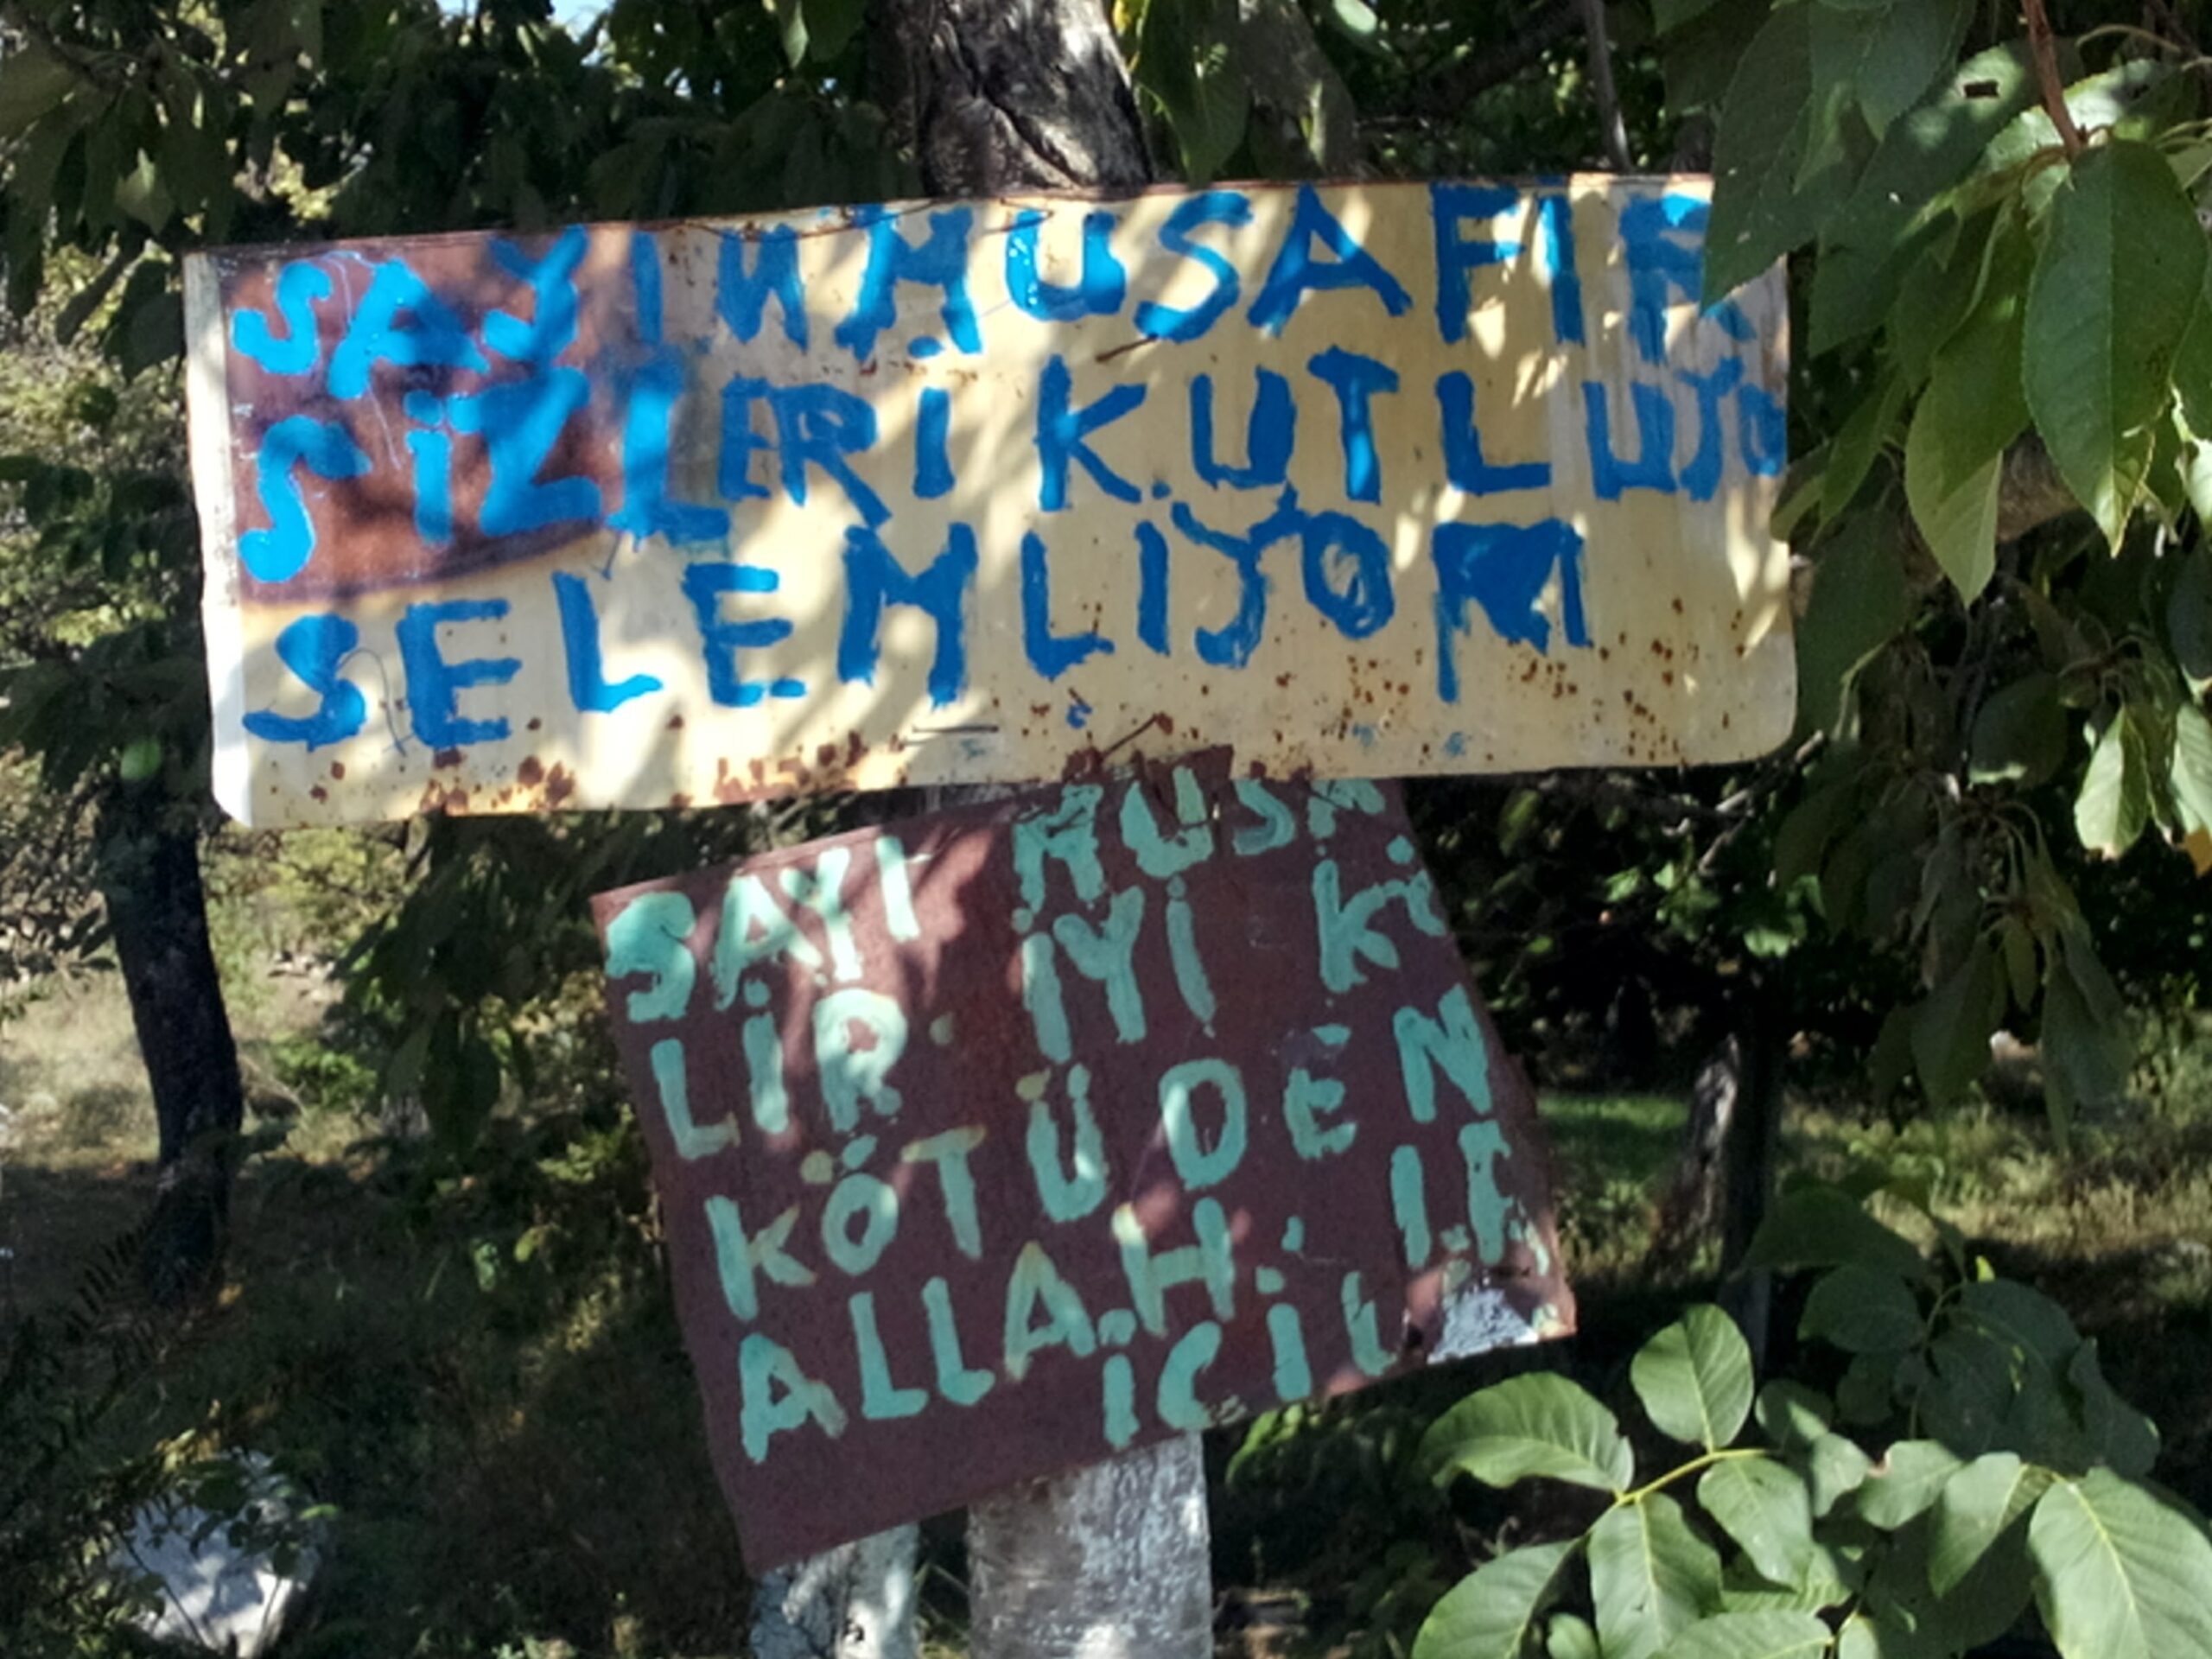 SAYIN MUSAFİR
SİZLERİ KUTLUYO
SELEMLIYORI
SAYI MUSA
LİR. İYİ Kİ
KÖTÜ DEN
ALLAH.
İÇİL